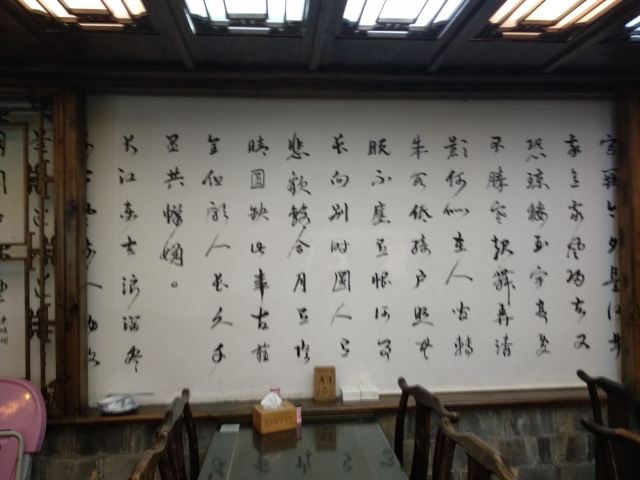 宫阙今夕是何年
我欲乘风归去又
恐琼楼玉宇高处
不胜寒起舞弄清
影何似在人间转
朱阁低绮户照无
眠不应有恨何事
长向别时圆人有
悲欢离合月有阴
晴圆缺此事古难
全但愿人长久千
里共婵娟。
大江东去浪淘尽